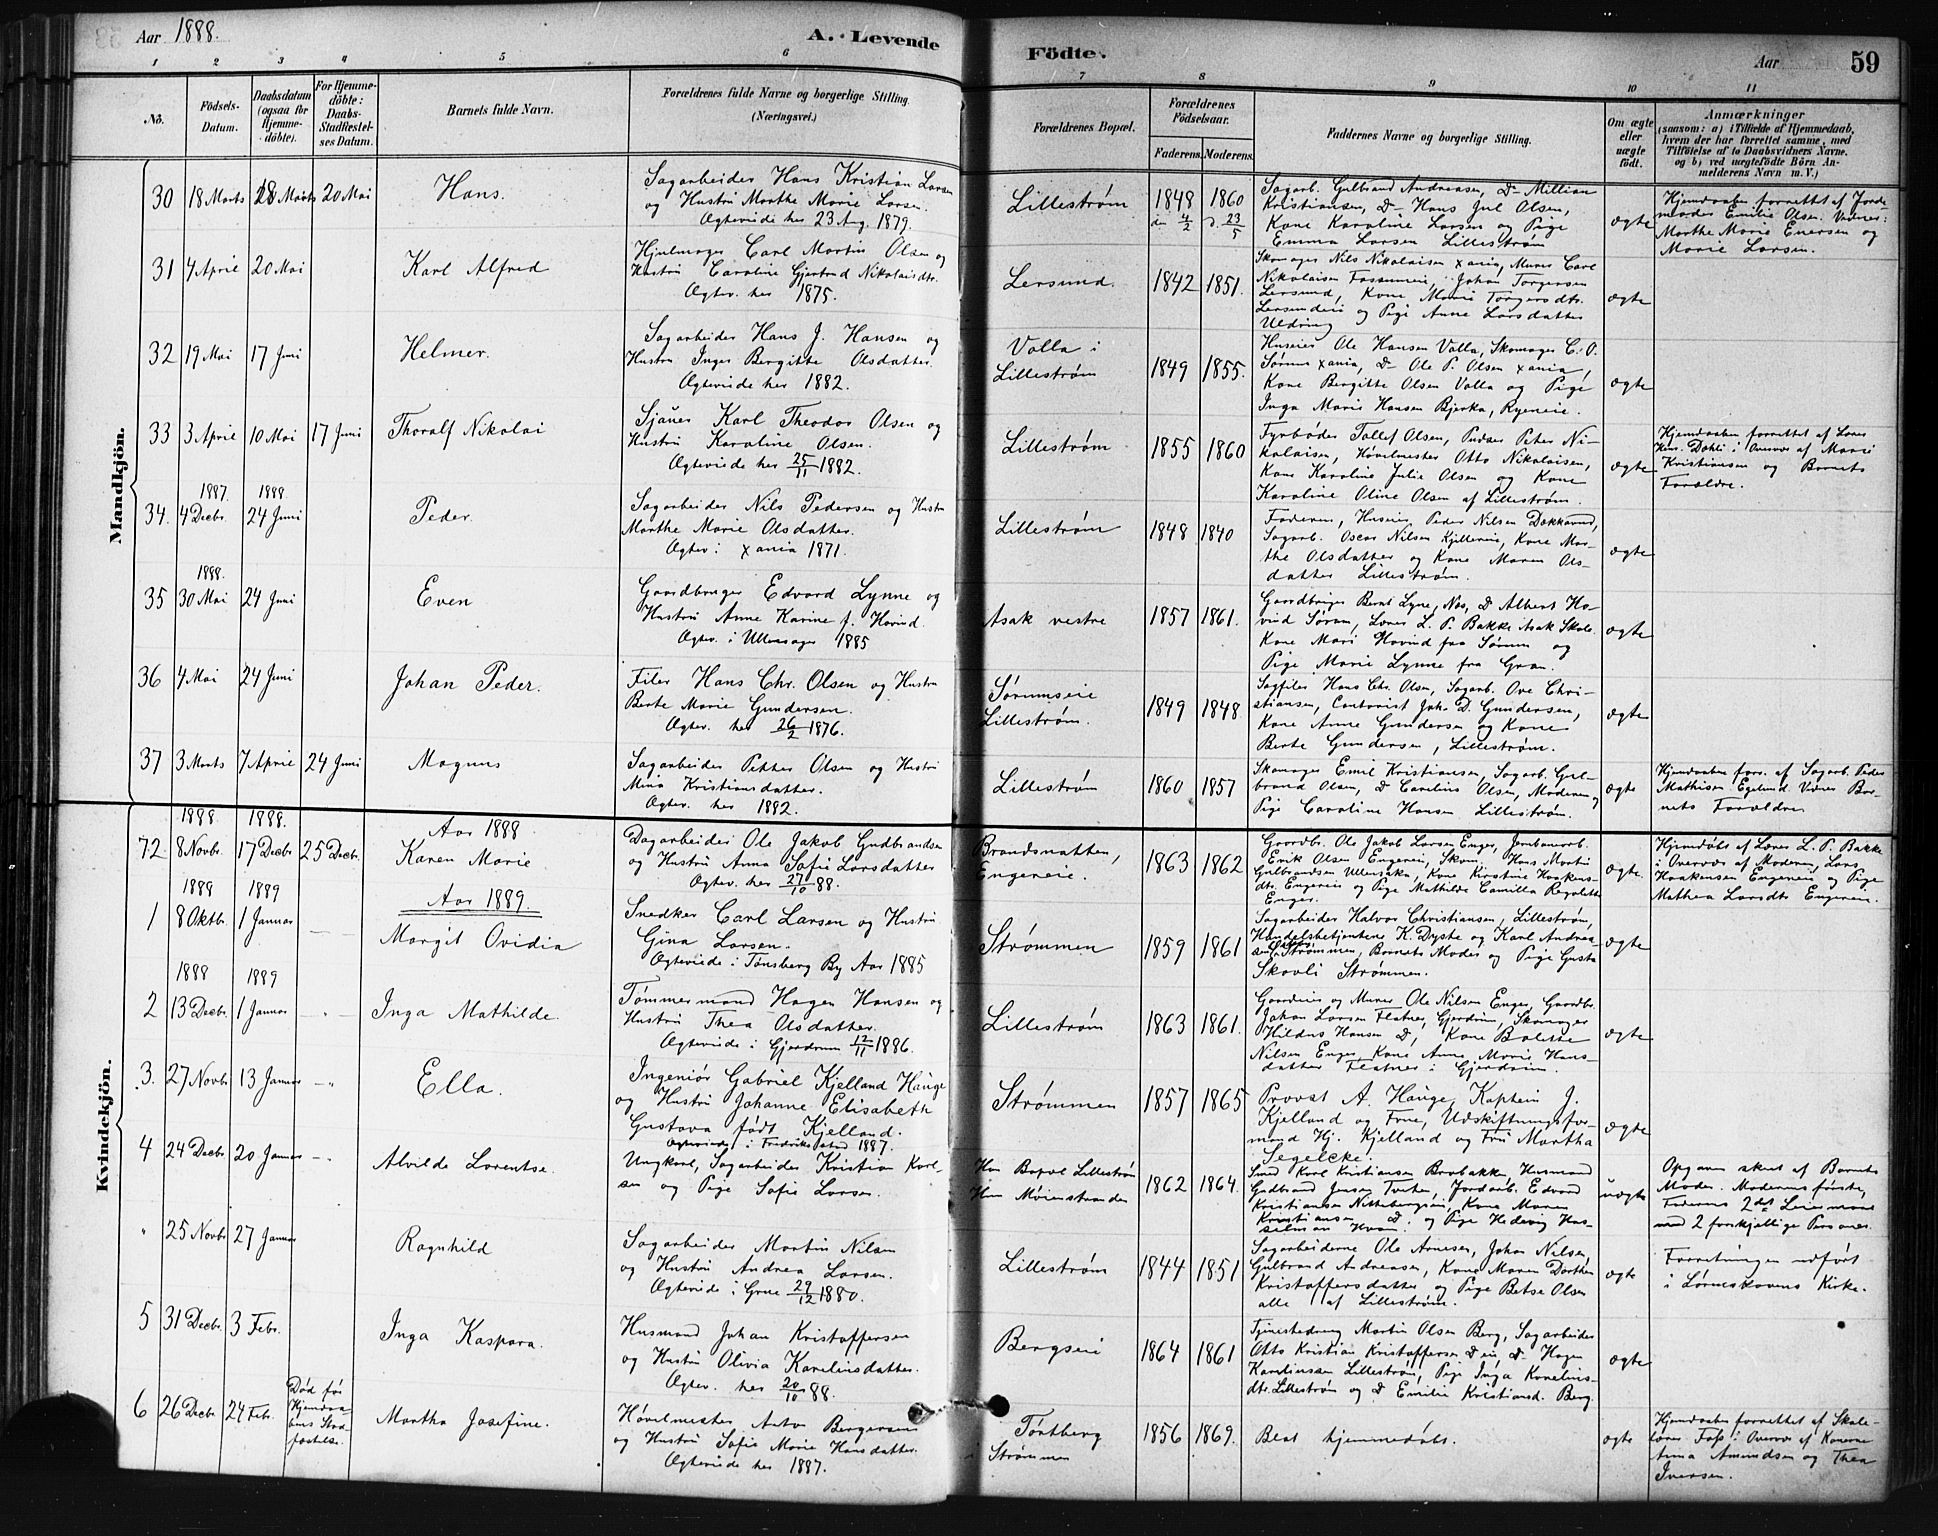 Aar 1888.
A. Levende
Födte.
Aar
59
1
2
3
4
5
6
7
8
9
10
11
No.
Födsels-
Datum.
Daabsdatum
(ogsaa for
Hjemme-
döbte).
For Hjemme-
döbte:
Daabs-
Stadfæstel-
ses Datum.
Barnets fulde Navn.
Forældrenes fulde Navne og borgerlige Stilling.
(Næringsvei.)
Forældrenes Bopæl.
Forældrenes
Födselsaar.
Faderens. Moderens.
Faddernes Navne og borgerlige Stilling.
Om ægte
eller
uægte
födt.
Anmærkninger
(saasom: a) i Tilfælde af Hjemmedaab,
hvem der har forrettet samme, med
Tilföielse af to Daabsvidners Navne,
og b) ved uægtefödte Börn An-
melderens Navn m. V.)
Mandkjön.
30
18 Marts
28 Marts
20 Mai
Hans.
Sagarbeider Hans Kristian Larsen
og Hustru Marthe Marie Larsen.
Ægteviede her 23 Aug. 1879.
Lillestrøm
1848
4/2
1860
23/5
Sagarb. Gulbrand Andreasen, D- Millian
Kristiansen, D- Hans Jul Olsen,
Kone Karoline Larsen og Pige
Emma Larsen Lillestrøm
ægte
Hjemdaaben forrettet af Jorde-
moder Emilie Olsen. Vidner:
Marthe Marie Enersen og
Marie Larsen.
31
4 April
20 Mai
Karl Alfred
Hjulmager Carl Martin Olsen og
Hustru Caroline Gjertrud Nikolaisdtr.
Ægtev. her 1875.
Lersund.
1842
1851.
Skomager Nils Nikolaisen Xania, Murer Carl
Nikolaisen Fossumeie, Johan Torgersen
Lersund, Kone Marie Torgersdtr.
Lersundeie og Pige Anne Larsdatter
Ueldring
ægte
32
19 Mai
17 Juni
Helmer.
Sagarbeider Hans J. Hansen og
Hustru Inger Bergitte Olsdatter.
Ægteviede her 1882.
Volla i
Lillestrøm
1849
1855.
Huseier Ole Hansen Volla, Skomager C. O.
Sørum Xania, D- Ole P. Olsen Xania,
Kone Bergitte Olsen Volla og Pige
Inga Marie Hansen Bjerka, Ryeneie.
ægte
33
3 April
10 Mai
17 Juni
Thoralf Nikolai
Sjauer Karl Theodor Olsen og
Hustru Karoline Olsen.
Ægteviede her 25/11 1882.
Lillestrøm
1855
1860
Fyrbøder Tollef Olsen, Pudser Peter Ni-
kolaisen, Høvelmester Otto Nikolaisen,
Kone Karoline Julie Olsen og Kone
Karoline Oline Olsen af Lillestrøm.
ægte
Hjemdaaben forrettet af Lærer
Hans. Dahli i Overvær af Marie
Kristiansen og Barnets
Forældre.
34.
1887.
4 Decbr.
1888
24 Juni
Peder.
Sagarbeider Nils Pedersen og Hustru
Marthe Marie Olsdatter.
Ægtev. i Xania 1871.
Lillestrøm
1848
1840
Faderen, Huseier Peder Nilsen Dokkerud,
Sagarb. Oscar Nilsen Kjillereie, Kone Mar-
the Olsdatter og Kone Maren Ols-
datter Lillestrøm.
ægte
35
1888.
30 Mai
24 Juni
Even
Gaardbruger Edvard Lynne og
Hustru Anne Karine f. Hovind.
Ægtev. i Ullensager 1885
Asak vestre
1857
1861.
Gaardbruger Bernt Lyne, Næs, D Albert Ho-
vind Sørum, Lærer L. P. Bakke Asak Skole.
Kone Mari Hovind fra Sørum og
Pige Marie Lynne fra Gran.
ægte
36
4 Mai
24 Juni
Johan Peder.
Filer Hans Chr. Olsen og Hustru
Berte Marie Gundersen.
Ægtev. her 26/2 1876.
Sørumseie
Lillestrøm.
1849
1848
Sagfiler Hans Chr. Olsen, Sagarb. Ove Chri-
stiansen, Contorist Joh. D. Gundersen,
Kone Anne Gundersen og Kone
Berte Gundersen, Lillestrøm.
ægte
37
3 Marts
7 April
24 Juni
Magnus
Sagarbeider Petter Olsen og Hustru
Mina Kristiansdatter.
Ægtev. her 1882.
Lillestrøm
1860
1857
Skomager Emil Kristiansen, Sagarb. Gul-
brand Olsen, D Carelius Olsen, Moderen og
Pige Caroline Hansen Lillestrøm.
ægte
Hjemdaaben forr. af Sagarb. Peder
Mathisen Egelund. Vidner Bar-
nets Forældre
Kvindekjön.
72
1888
8 Novbr.
1888.
17 Decbr.
25 Decbr.
Aar 1888
Karen Marie
Dagarbeider Ole Jakob Gudbrandsen
og Hustru Anna Sofie Larsdatter
Ægtev. her 27/10 88.
Brandsnatten,
Engereie.
1863
1862
Gaardbr. Ole Jakob Larsen Enger, Jernbanearb.
Erik Olsen Engereie, Skom. Hans Martin
Gulbrandsen Ullensaker, Kone Kirstine Haakens-
dtr. Engereie og Pige Mathilde Camilla Regolette
Enger.
ægte.
Hjemdøbt af Lærer L. P. Bakke
i Overvær af Moderen, Lars
Haakensen Engereie og Pige
Mathea Larsdtr Engereie.
1
1888
8 Oktbr.
1889
1 Januar
Aar 1889.
Margit Ovidia
Snedker Carl Larsen og Hustru
Gina Larsen.
Ægteviede i Tønsberg By Aar 1885
Strømmen
1859
1861
Sagarbeider Halvor Christiansen, Lillestrøm,
Handelsbetjentene K. Dyste og Karl Andrea-
sen Strømmen, Barnets Moder og Pige Gusta
Skovli Strømmen.
ægte
2
1888
13 Decbr.
1889
1 Januar
Inga Mathilde.
Tømmermand Hagen Hansen og
Hustru Thea Olsdatter.
Ægteviede i Gjerdrum 12/11 1886.
Lillestrøm
1863
1861.
Gaardeier og Murer Ole Nilsen Enger, Gaardbr.
Johan Larsen Flatner, Gjerdrum, Skomager
Hildus Hansen D, Kone Bolette
Nilsen Enger, Kone Anne Marie Hans-
datter Flatner i Gjerdrum.
ægte
3.
27 Novbr
13 Januar
Ella.
Ingeniør Gabriel Kjelland Hauge
og Hustru Johanne Elisabeth
Gustava født Kjelland.
Ægteviede i Fredrikstad 1887.
Strømmen
1857
1865
Provst A. Hauge, Kaptein J.
Kjelland og Frue, Udskiftningsfor-
mand Hj. Kjelland og Fru Martha
Segelcke.
ægte
4
24 Decbr
20 Januar
Alvilde Lorentse.
Ungkarl, Sagarbeider Kristian Karl-
sen og Pige Sofie Larsen.
Han Bopæl Lillestrøm
Hun Møienstranden
1862
1864.
Smed Karl Kristiansen Brobakke, Husmand
Gudbrand Jensen Tveter, Jordarb. Edvard
Kristiansen Nittebergseie, Kone Maren
Kristiansen D. og Pige Hedevig Has-
selman Hvam.
uægte
Opgaven skeet af Barnets
Moder. Moderens første,
Faderens 2det Leiermaal
med 2 forskjellige Personer.
"
25 Novbr
27 Januar
Ragnhild
Sagarbeider Martin Nilsen
og Hustru Andrea Larsen.
Ægteviede i Grue 29/12 1880.
Lillestrøm
1844
1851
Sagarbeiderne Ole Arnesen, Johan Nilsen,
Gulbrand Andreasen, Kone Maren Dorthea
Kristoffersdatter og Pige Betse Olsen
alle af Lillestrøm.
ægte
Forretningen udført
i Lørenskovens Kirke.
5
31 Decbr.
3 Febr.
Inga Kaspara.
Husmand Johan Kristoffersen
og Hustru Olivia Karelinsdatter.
Ægtev. her 20/10 88.
Bergseie
1864
1861
Tjenestedreng Martin Olsen Berg, Sagarbeider
Otto Kristian Kristoffersen D eie, D. Hagen
Karelinsen Lillestrøm, Pige Inga Kornelius-
dtr. Lillestrøm og D Emilie Kristiansd. Berg.
ægte
6
26 Decbr
24 Febr.
Død før
Hjemdaa-
bens Stad-
fæstelse.
Martha Josefine.
Høvelmester Anton Bergersen
og Hustru Sofie Marie Hansdatter.
Ægteviede her 1887.
Tørtberg
Strømmen
1856
1869.
Blot hjemmedøbt.
ægte
Hjemdaaben forrettet af Skole-
lærer Foss i Overvær af Konerne
Anna Amundsen og Thea
Iversen.